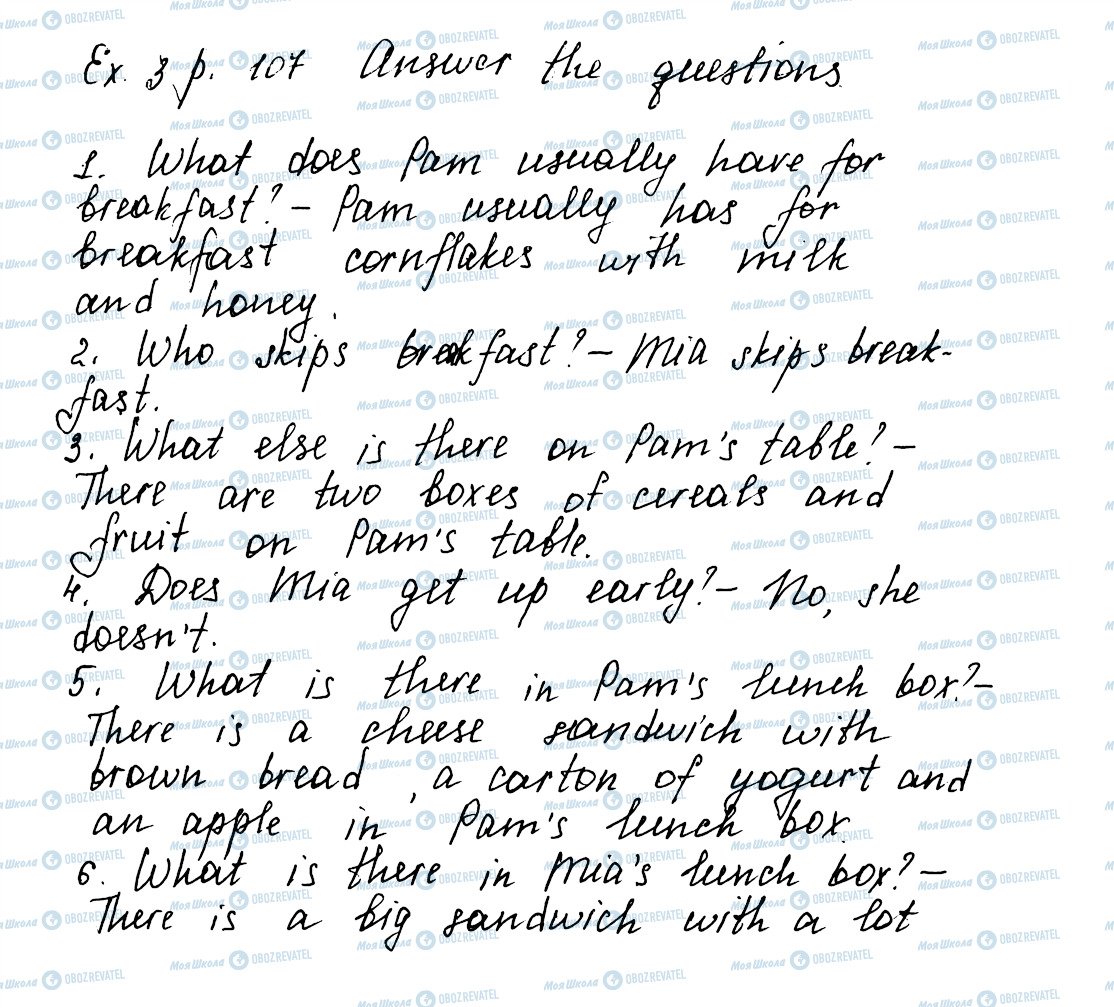 Ex. 3 p. 107 Answer the questions.
1. What does Pam usually have for
breakfast? – Pam usually has for
breakfast cornflakes with milk
and honey.
2. Who skips breakfast? – Mia skips break-
fast.
3. What else is there on Pam's table? –
There are two boxes of cereals and
fruit on Pam's table.
4. Does Mia get up early? – No, she
doesn't.
5. What is there in Pam's lunch box? –
There is a cheese sandwich with
brown bread, a carton of yogurt and
an apple in Pam's lunch box.
6. What is there in Mia's lunch box? –
There is a big sandwich with a lot
МояШкола OBOZREVATEL